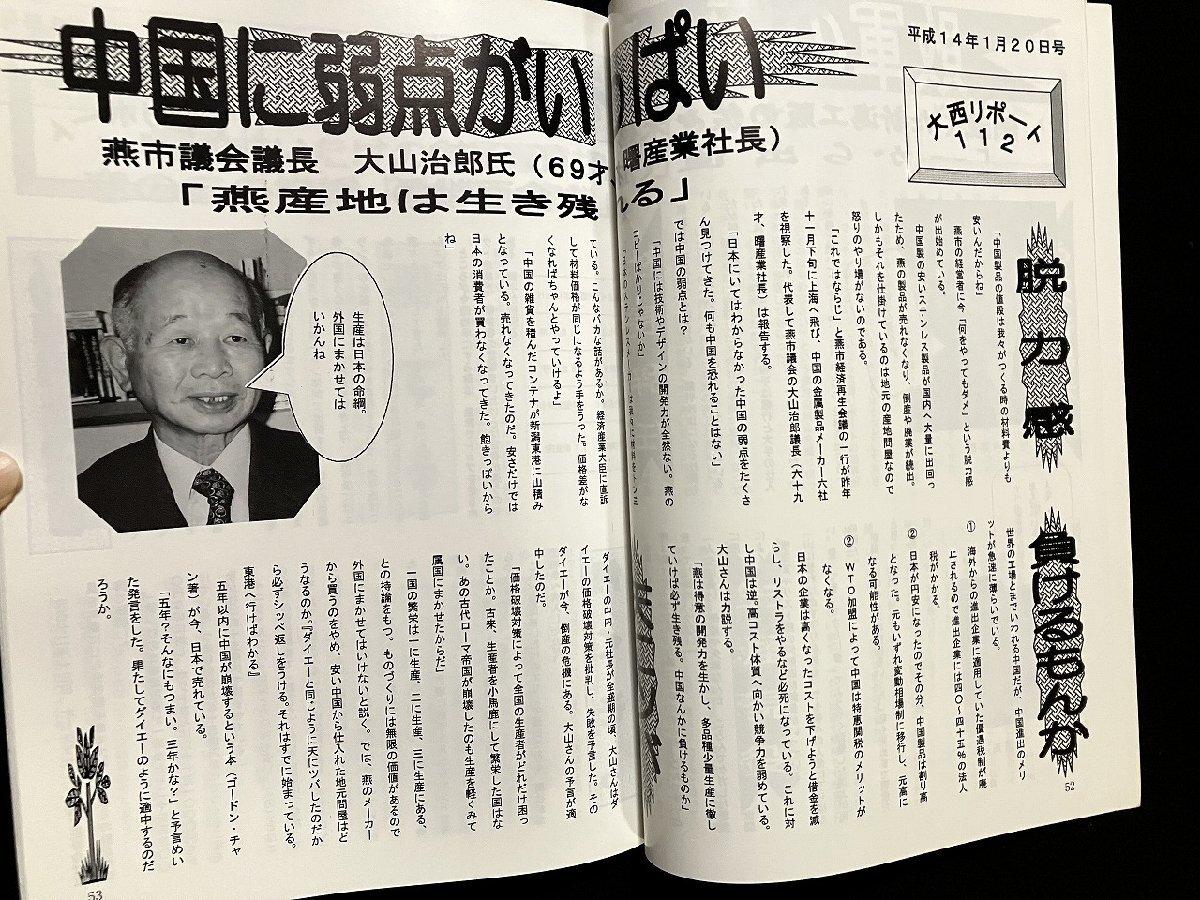 平成14年1月20日号
大西リポート
112
中国に弱点がいっぱい
燕市議会議長 大山治郎氏(69才、曙産業社長)
「燕産地は生き残れる」
脱力感
「中国製品の値段は我々がつくる時の材料費よりも
安いんだからね」
燕市の経営者に今「何をやってもダメ」という脱力感
が出始めている。
中国製の安いステンレス製品が国内へ大量に出回っ
たため、燕の製品が売れなくなり、倒産や廃業が続出。
しかもそれを仕掛けているのは地元の産地問屋なので
怒りのやり場がないのである。
「これではならじ」と燕市経済再生会議の一行が昨年
十一月下旬に上海へ飛び、中国の金属製品メーカー六社
を視察した。代表して燕市議会の大山治郎議長(六十九
才、曙産業社長)は報告する。
「日本にいてはわからなかった中国の弱点をたくさ
ん見つけてきた。何も中国を恐れることはない」
では中国の弱点とは?
「中国には技術やデザインの開発力が全然ない。燕の
コピーばかりじゃないか」
ている。こんなバカな話があるか。経済産業大臣に直訴
して材料価格が同じになるよう手をうった。価格差がな
くなればちゃんとやっていけるよ」
「中国の雑貨を積んだコンテナが新潟東港に山積み
となっている。売れなくなってきたのだ。安さだけでは
日本の消費者が買わなくなってきた。飽きっぽいから
ね」
生産は日本の命綱。
外国にまかせては
いかんね
負けるもんか
世界の工場とまでいわれる中国だが、中国進出のメリ
ットが急速に薄らいでいる。
① 海外からの進出企業に適用していた優遇税制が廃
止されるので進出企業には四〇〜四十五%の法人
税がかかる。
② 日本が円安になったのでその分、中国製品は割り高
となった。元もいずれ変動相場制に移行し、元高に
なる可能性がある。
② WTO加盟によって中国は特恵関税のメリットが
なくなる。
日本の企業は高くなったコストを下げようと借金を減
らし、リストラをやるなど必死になっている。これに対
し中国は逆。高コスト体質へ向かい競争力を弱めている。
大山さんは力説する。
「燕は得意の開発力を生かし、多品種少量生産に徹し
ていけば必ず生き残る。中国なんかに負けるものか」
ダイエーの中内・元社長が全盛期の頃、大山さんはダ
イエーの価格破壊対策を批判し、失敗を予言した。その
ダイエーが今、倒産の危機にある。大山さんの予言が適
中したのだ。
「価格破壊対策によって全国の生産者がどれだけ困っ
たことか。古来、生産者を小馬鹿にして繁栄した国はな
い。あの古代ローマ帝国が崩壊したのも生産を軽くみて
属国にまかせたからだ」
一国の繁栄は一に生産、二に生産、三に生産にある、
との持論をもつ。ものづくりには無限の価値があるので
外国にまかせてはいけないと説く。では、燕のメーカー
から買うのをやめ、安い中国から仕入れた地元問屋はど
うなるのか。『ダイエーと同じように天にツバしたのだか
ら必ずシッペ返しをうける。それはすでに始まっている。
東港へ行けばわかる』
五年以内に中国が崩壊するという本(ゴードン・チャ
ン著)が今、日本で売れている。
「五年?そんなにもつまい。三年かな?」と予言めい
た発言をした。果たしてダイエーのように適中するのだ
ろうか。
52
53